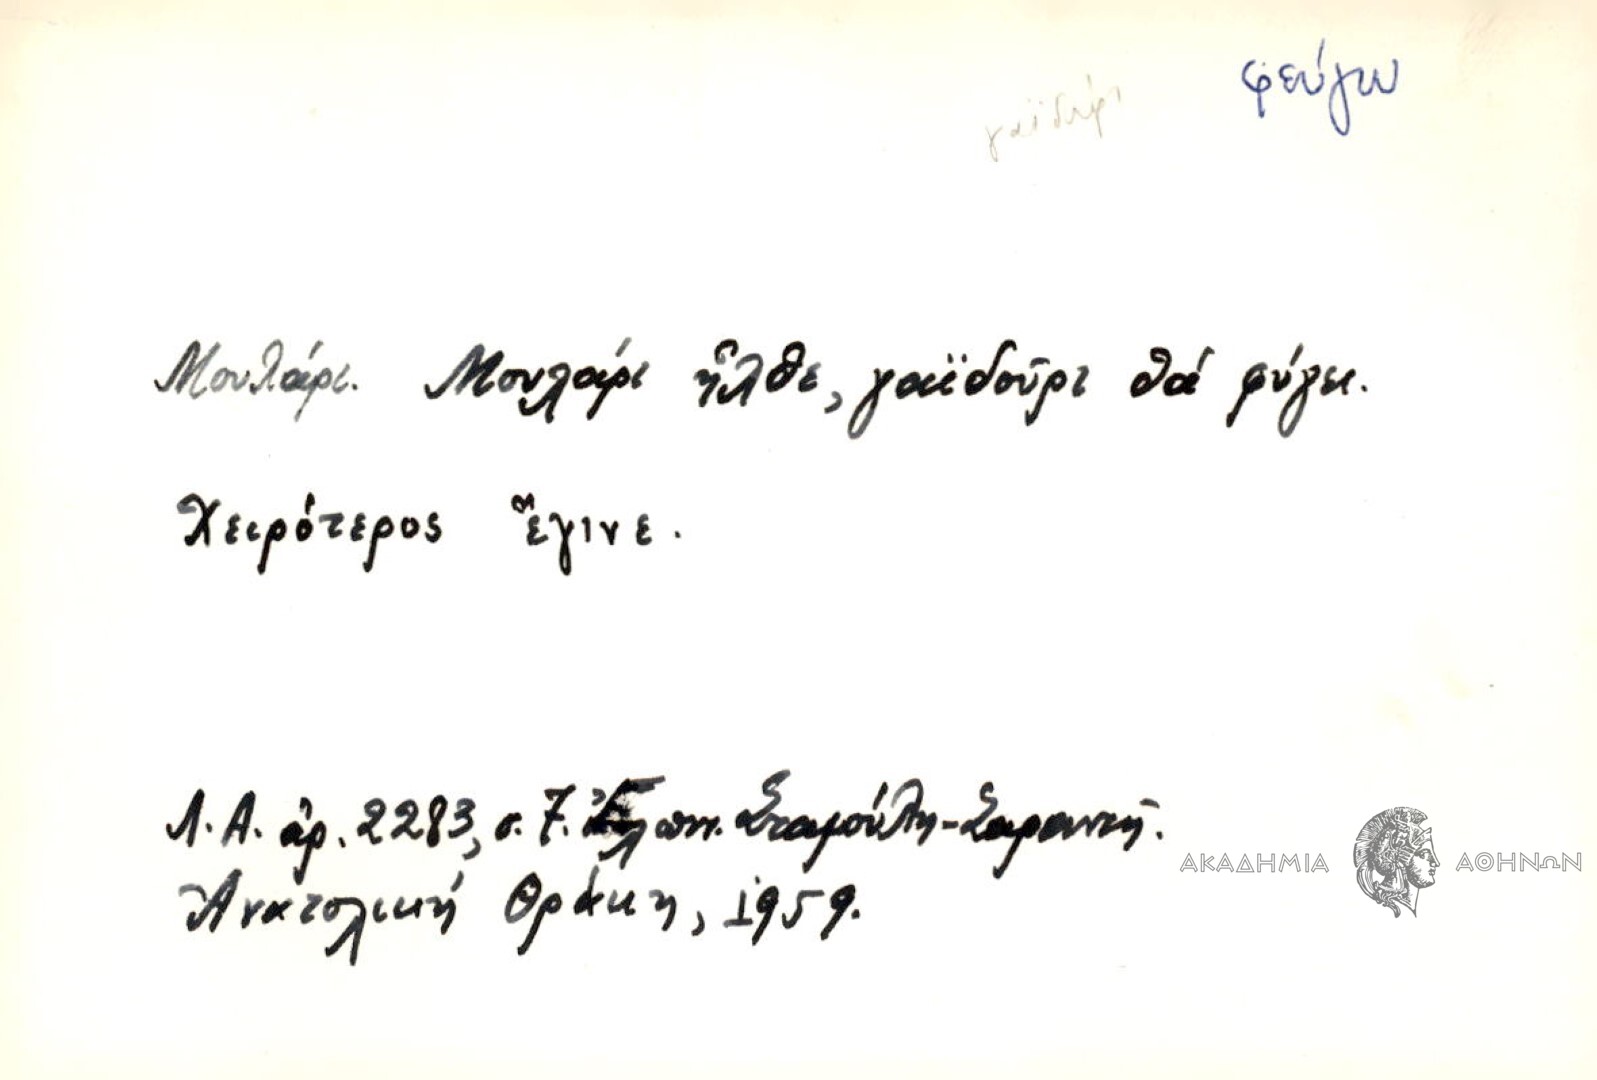 φεύγω
γαϊδούρι
Μουλάρι. Μουλάρι ἦλθε, γαϊδοῦρι θά φύγει.
Χειρότερος ἔγινε.
Λ.Α. ἀρ. 2283, σ. 7. Ἐλπιν. Σταμούλη-Σαραντῆ.
Ἀνατολική Θράκη, 1959.
ΑΚΑΔΗΜΙΑ ΑΘΗΝΩΝ